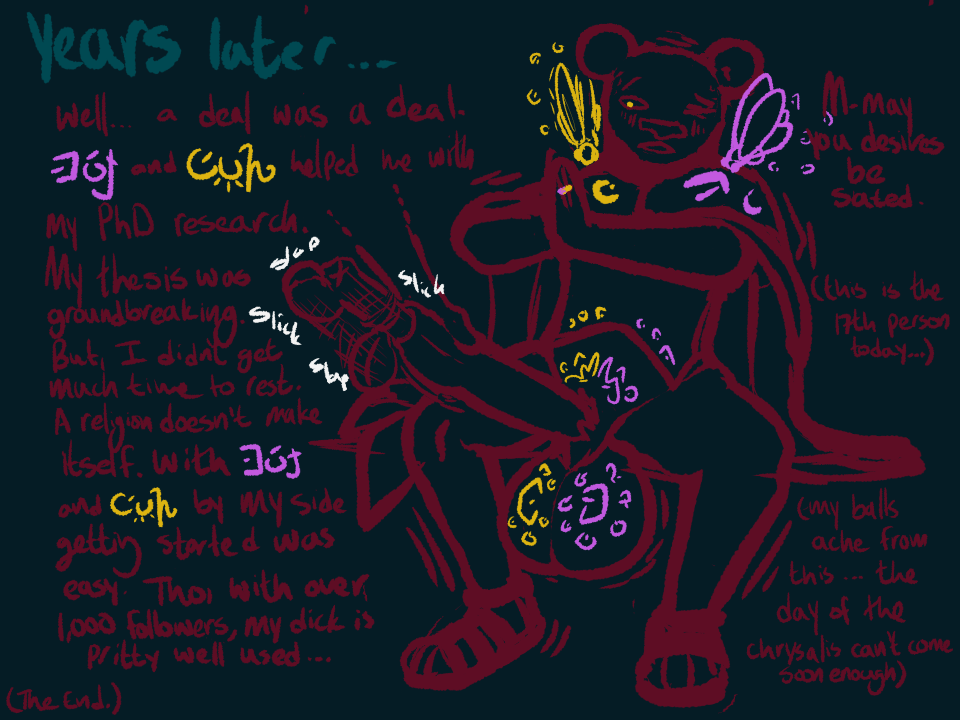 Years later...
Well... a deal was a deal.
and helped me with
my PhD research.
My thesis was
groundbreaking.
But, I didn't get
much time to rest.
A religion doesn't make
itself. With
and by my side
getting started was
easy. Tho, with over
1,000 followers, my dick is
pritty well used...
(The End.)
slick
slick
M-may
you desires
be
sated.
(this is the
17th person
today...)
(my balls
ache from
this... the
day of the
chrysalis can't come
soon enough)